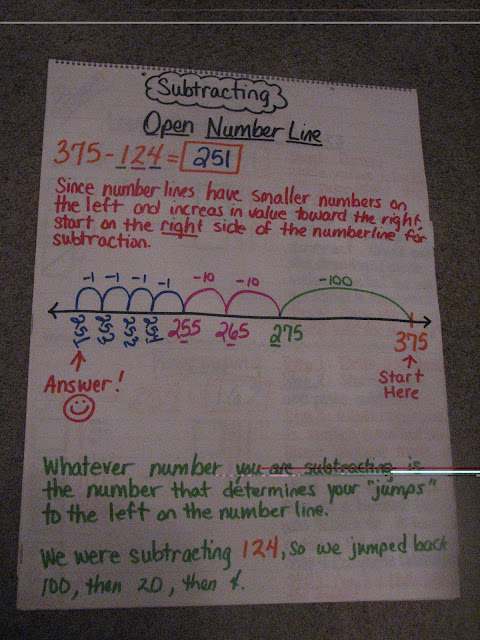 Subtracting
Open Number Line
375-124=251
Since number lines have smaller numbers on
the left and increas in value toward the right,
start on the right side of the numberline for
subtraction.
-1 -1 -1 -1 -10 -10 -100
251 252 253 254 255 265 275 375
Answer! Start
Here
Whatever number you are subtracting is
the number that determines your "jumps"
to the left on the number line.
We were subtracting 124, so we jumped back
100, then 20, then 4.